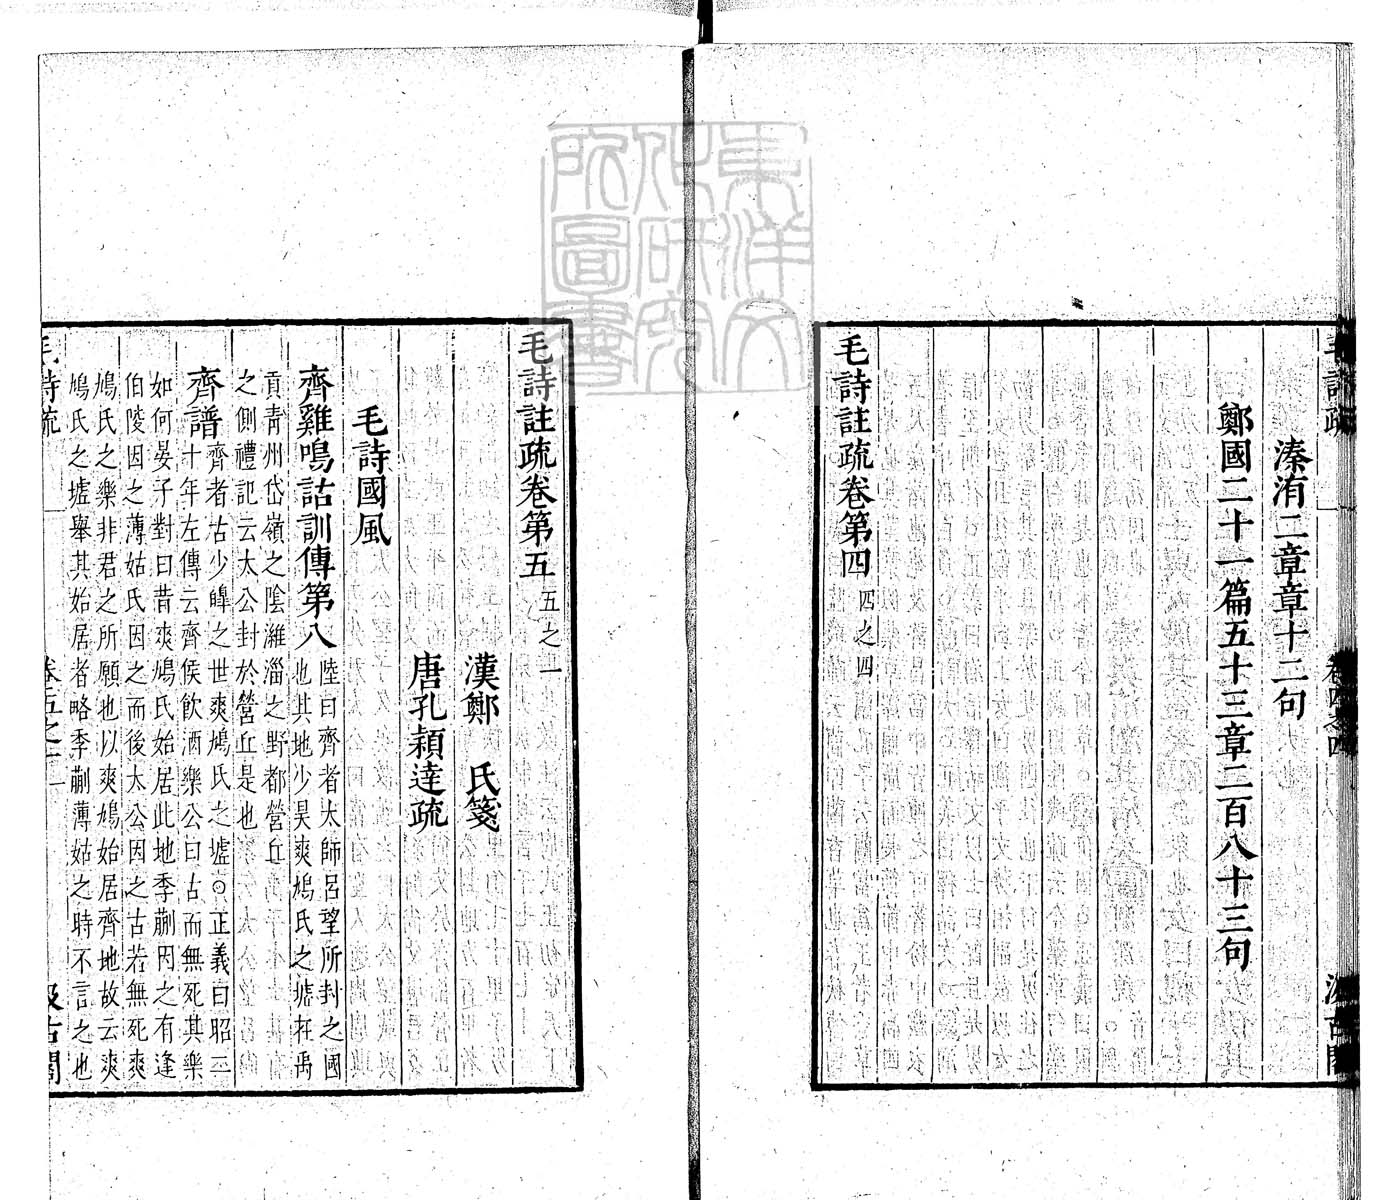 毛詩疏
卷四之四
汲古閣
溱洧二章章十二句
鄭國二十一篇五十三章二百八十三句
毛詩註疏卷第四 四之四
東洋文化研究所圖書
毛詩註疏卷第五 五之一
漢鄭 氏箋
唐孔穎達疏
毛詩國風
齊雞鳴詁訓傳第八 陸曰齊者太師呂望所封之國
也其地少昊爽鳩氏之墟在禹
貢青州岱嶺之陰濰淄之野都營丘
之側禮記云太公封於營丘是也
齊譜 齊者古少皥之世爽鳩氏之墟○正義曰昭二
十年左傳云齊侯飲酒樂公曰古而無死其樂
如何晏子對曰昔爽鳩氏始居此地季萴因之有逢
伯陵因之薄姑氏因之而後太公因之古若無死爽
鳩氏之樂非君之所願也以爽鳩始居齊地故云爽
鳩氏之墟舉其始居者略季萴薄姑之時不言之也
毛詩疏
卷五之一
一
汲古閣